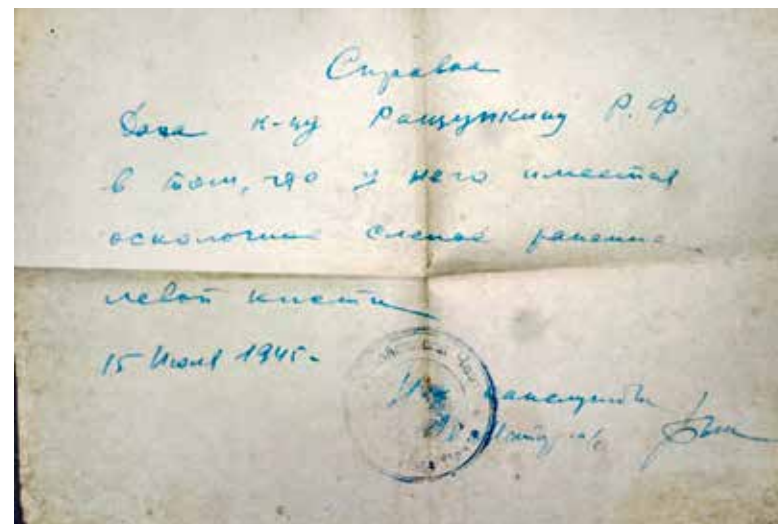 Справка
Дана к-цу Ращупкину Р. Ф.
в том, что у него имеется
осколочное слепое ранение
левой кисти
15 Июля 1945г.
Нач. санслужбы